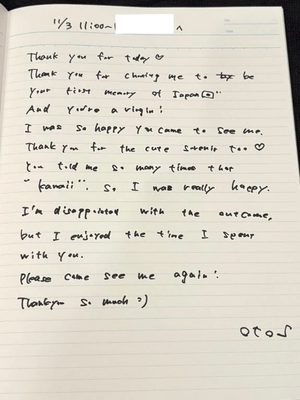 11/3 11:00~
Thank you for today ♡
Thank you for chosing me to be
your first memory of Japan
And you're a virgin!
I was so happy you came to see me.
Thank you for the cute sovenir too ♡
You told me so many times that
"kawaii". So I was really happy.
I'm disappointed with the outcome,
but I enjoyed the time I spent
with you.
Please come see me again!
Thankyou so much :)